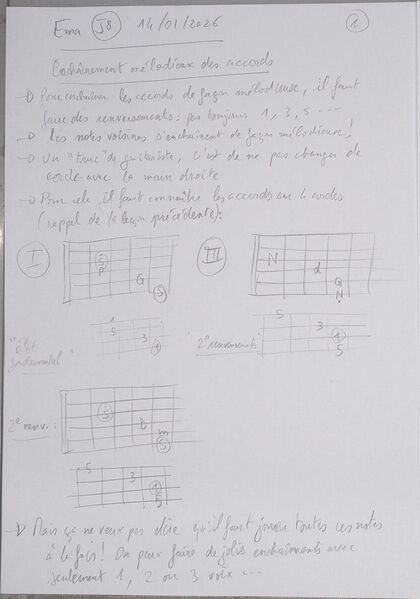 Ema J8 14/01/2026 1
Enchaînement mélodieux des accords
→ Pour enchaîner les accords de façon mélodieuse, il faut
faire des renversements : pas toujours 1, 3, 5 ...
→ Les notes voisines s'enchaînent de façon mélodieuse,
→ Un "truc" de guitariste, c'est de ne pas changer de
corde avec la main droite
→ Pour cela il faut connaître les accords sur 4 cordes
(rappel de la leçon précédente):
I III
S N
P d
G G
S N
1 5
5 3 3
1 1
5
"état
fondamental" "2e renversement"
2e renv. :
S
D
m
S
5
3
1
5
→ Mais ça ne veux pas dire qu'il faut jouer toutes ces notes
à la fois ! On peux faire de jolis enchaînements avec
seulement 1, 2 ou 3 voix ...